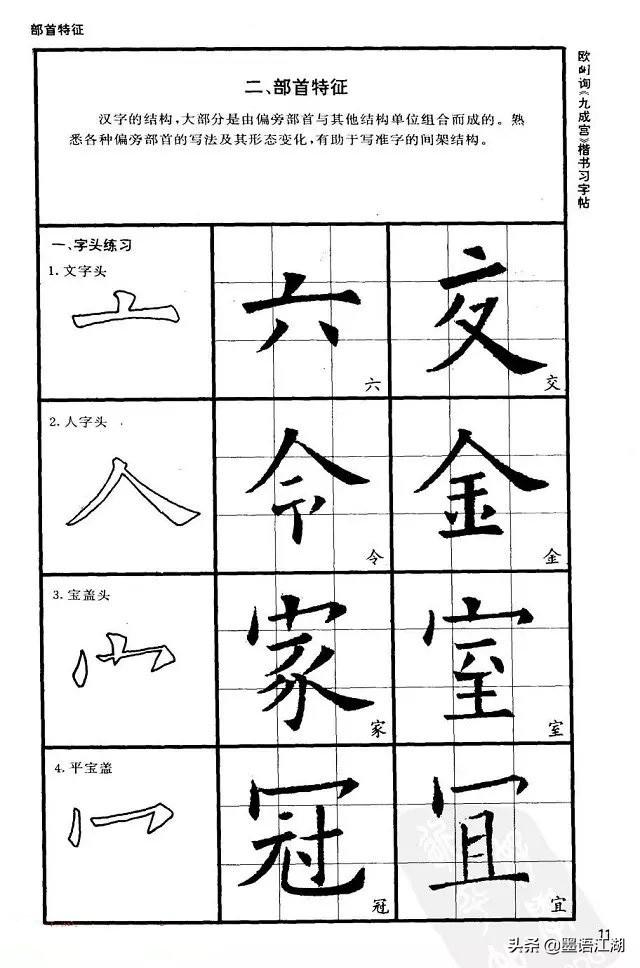 部首特征
欧阳询《九成宫》楷书习字帖
二、部首特征
汉字的结构,大部分是由偏旁部首与其他结构单位组合而成的。熟
悉各种偏旁部首的写法及其形态变化,有助于写准字的间架结构。
一、字头练习
1.文字头
亠
六
六
交
交
2.人字头
人
令
令
金
金
3.宝盖头
宀
家
家
室
室
4.平宝盖
冖
冠
冠
冝
宜
11
头条@墨语江湖